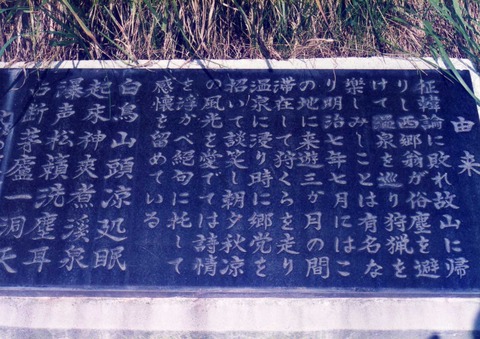 由来
征韓論に敗れ故山に帰
りし西郷翁が俗塵を避
けて温泉を巡り狩猟を
楽しみしことは有名な
り明治七年七月にはこ
の地に来遊三か月の間
滞在して狩くらを走り
温泉に浸り時に郷党を
招いて談笑し朝夕秋涼
の風光を愛でては詩情
を浮かべ絶句に托して
感懐を留めている
白鳥山頭涼処眠
起来神爽煮渓泉
瀑声松籟洗塵耳
占断茅廬一洞天